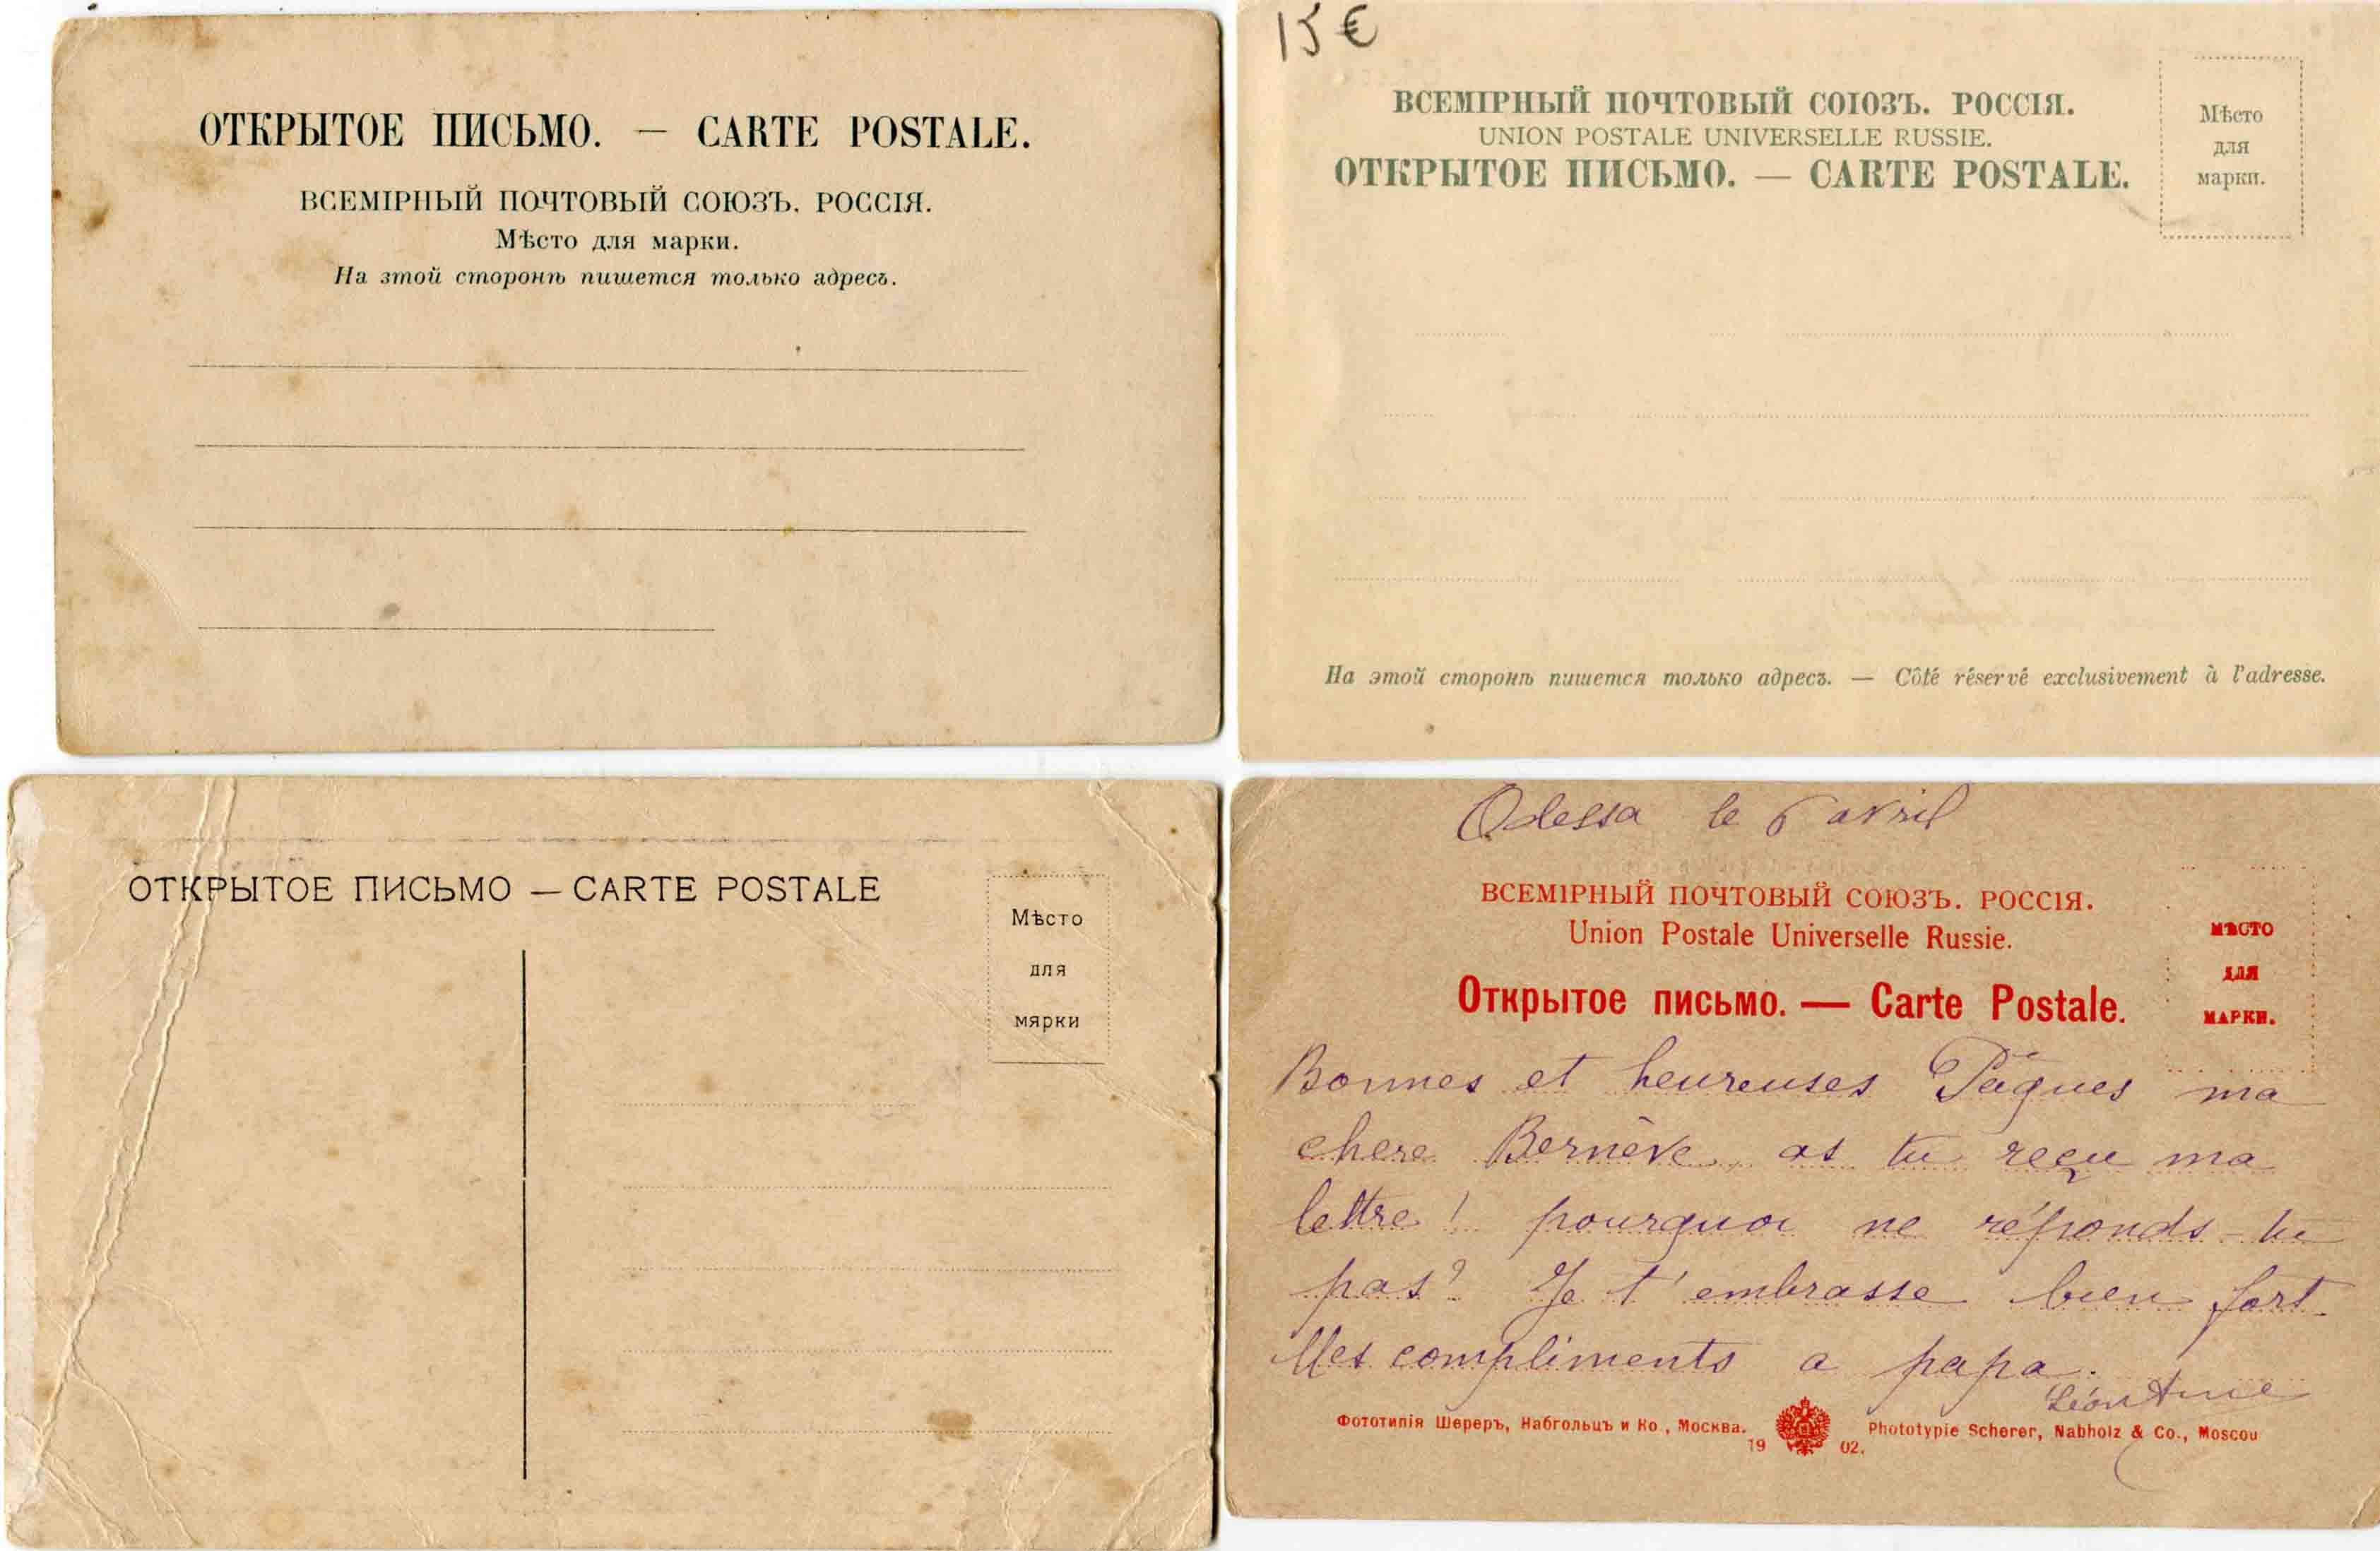 ОТКРЫТОЕ ПИСЬМО. — CARTE POSTALE.
ВСЕМІРНЫЙ ПОЧТОВЫЙ СОЮЗЪ. РОССІЯ.
Мѣсто для марки.
На этой сторонѣ пишется только адресъ.
15 €
ВСЕМІРНЫЙ ПОЧТОВЫЙ СОЮЗЪ. РОССІЯ.
UNION POSTALE UNIVERSELLE RUSSIE.
ОТКРЫТОЕ ПИСЬМО. — CARTE POSTALE.
Мѣсто
для
марки.
На этой сторонѣ пишется только адресъ. — Côté réservé exclusivement à l'adresse.
ОТКРЫТОЕ ПИСЬМО — CARTE POSTALE
Мѣсто
для
мярки
Odessa le 6 avril
ВСЕМІРНЫЙ ПОЧТОВЫЙ СОЮЗЪ. РОССІЯ.
Union Postale Universelle Russie.
Открытое письмо. — Carte Postale.
МѢСТО
ДЛЯ
МАРКИ.
Bonnes et heureuses Pâques ma
chere Bernève as tu reçu ma
lettre ! pourquoi ne réponds-tu
pas? Je t'embrasse bien fort
Mes compliments a papa.
Léontine
Фототипія Шереръ, Набгольцъ и Ко, Москва. 1902. Phototypie Scherer, Nabholz & Co., Moscou